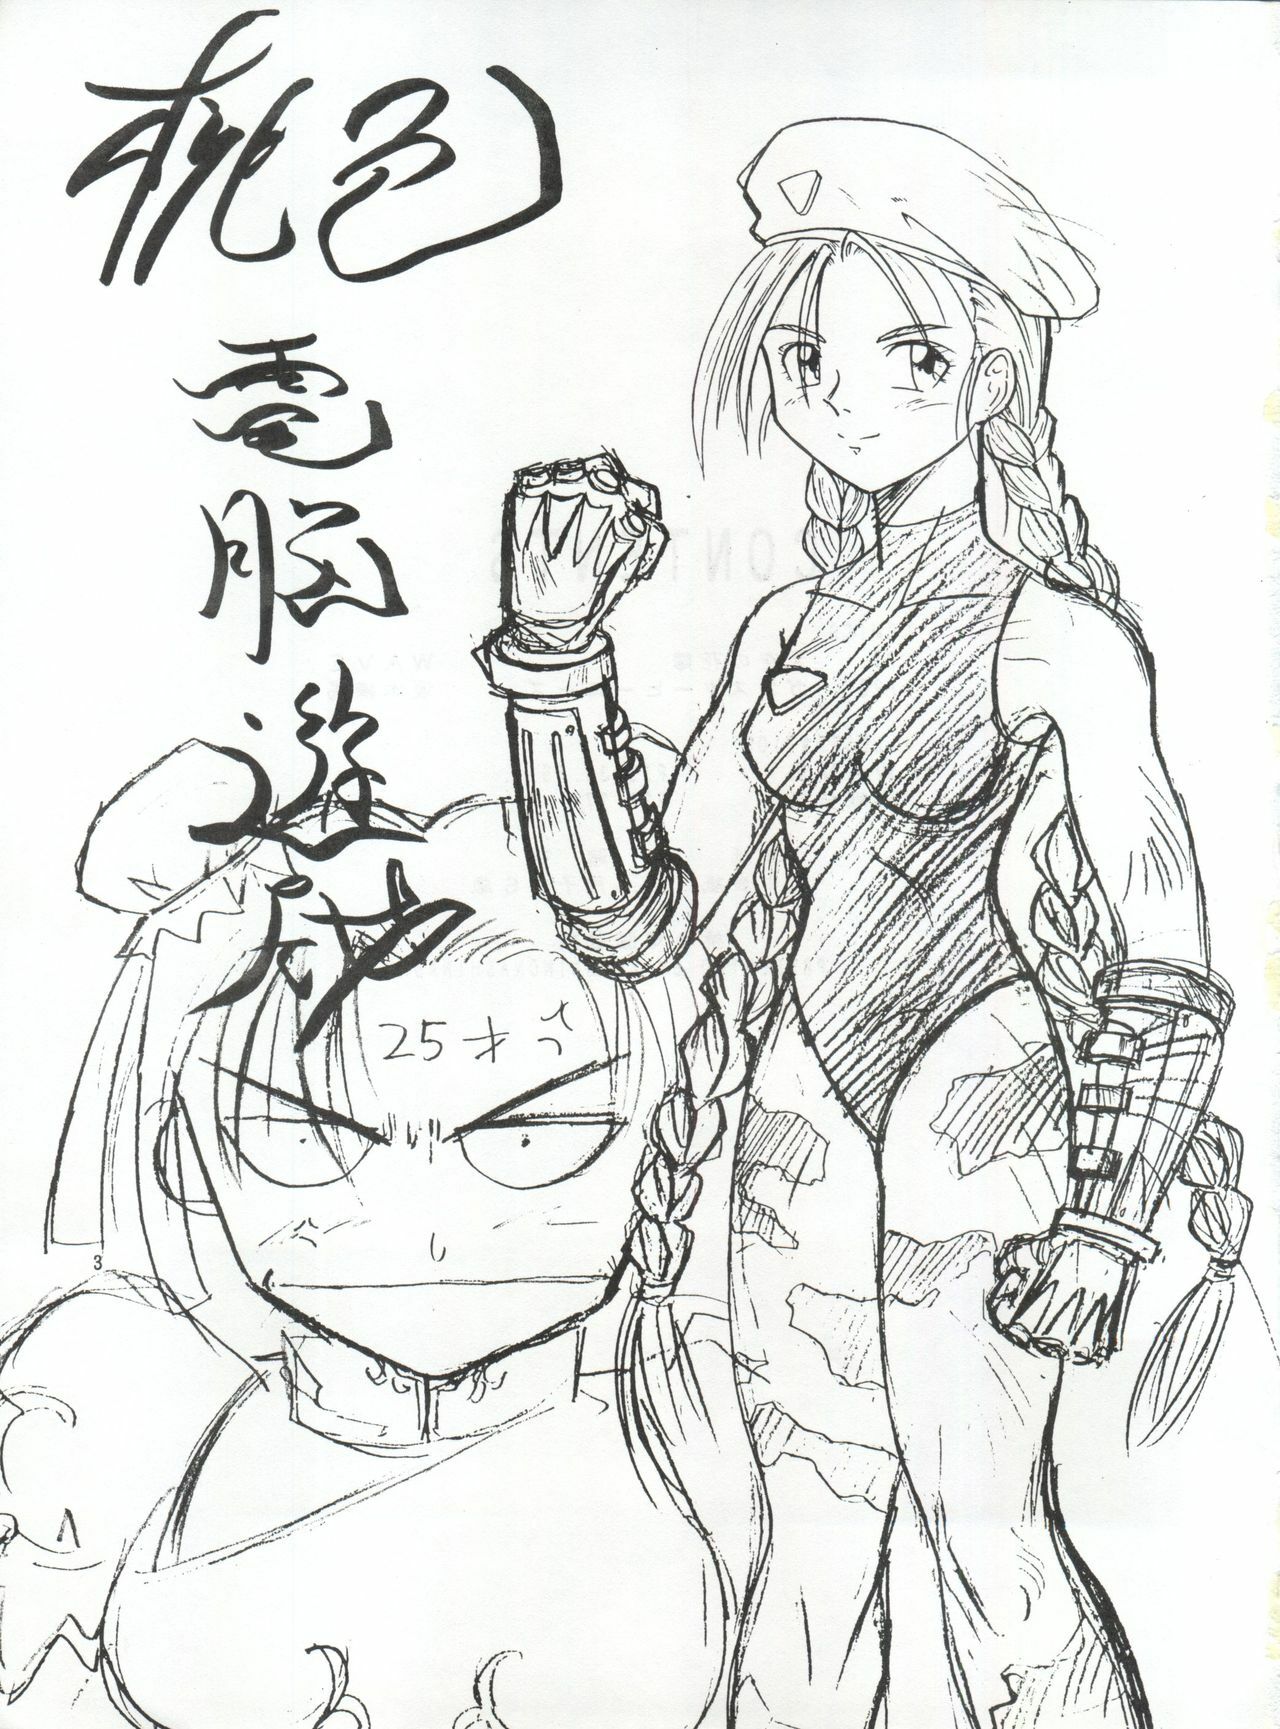 桃色
電脳遊戯
25才っ
3